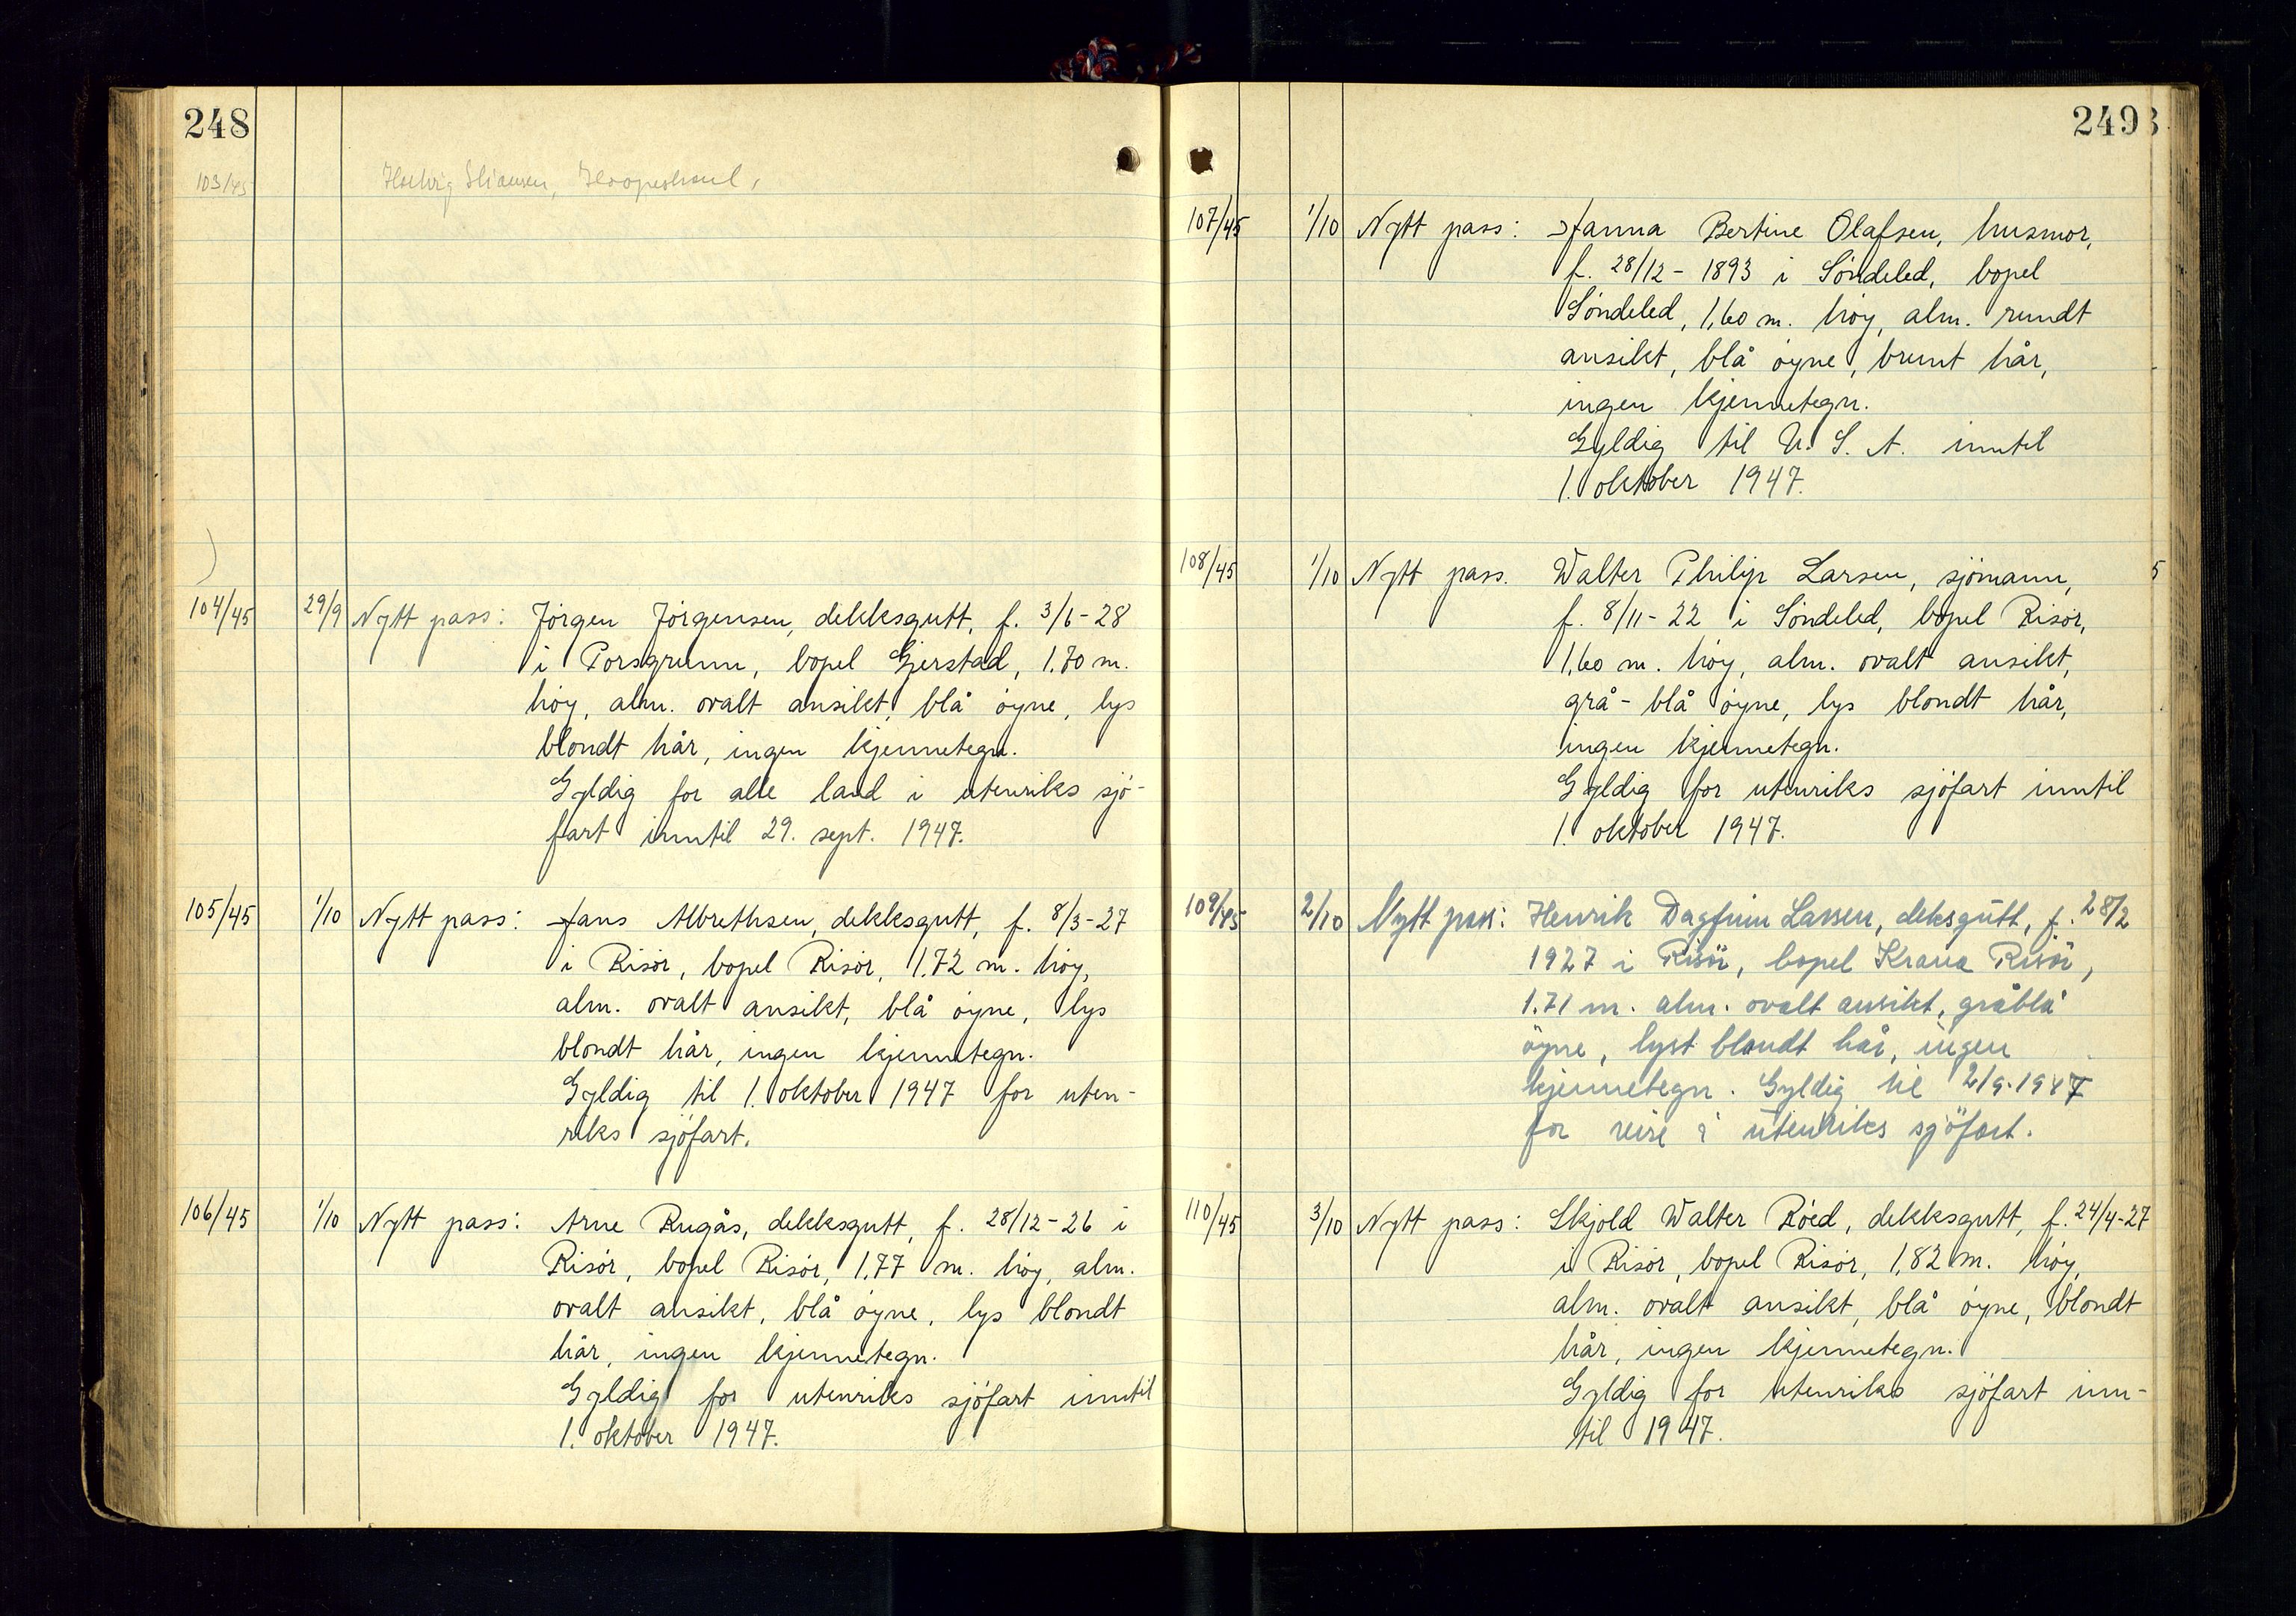 248
103/45
104/45 29/9 Nytt pass: Jörgen Jörgensen, dekksgutt, f. 3/6-28
i Porsgrunn, bopel Gjerstad, 1.70 m.
höy, alm. ovalt ansikt, blå öyne, lys
blondt hår, ingen kjennetegn.
Gyldig for alle land i utenriks sjö-
fart inntil 29. sept. 1947.
105/45 1/10 Nytt pass: Hans Albrethsen, dekksgutt, f. 8/3-27
i Risör, bopel Risör, 1.72 m. höy,
alm. ovalt ansikt, blå öyne, lys
blondt hår, ingen kjennetegn.
Gyldig til 1. oktober 1947 for uten-
riks sjöfart.
106/45 1/10 Nytt pass: Arne Rugås, dekksgutt, f. 28/12-26 i
Risör, bopel Risör, 1.77 m. höy, alm.
ovalt ansikt, blå öyne, lys blondt
hår, ingen kjennetegn.
Gyldig for utenriks sjöfart inntil
1. oktober 1947.
249
107/45 1/10 Nytt pass: Hanna Bertine Olafsen, husmor,
f. 28/12-1893 i Söndeled, bopel
Söndeled, 1,60 m. höy, alm. rundt
ansikt, blå öyne, brunt hår,
ingen kjennetegn.
Gyldig til U.S.A. inntil
1. oktober 1947.
108/45 1/10 Nytt pass. Walter Philip Larsen, sjömann,
f. 8/11-22 i Söndeled, bopel Risör,
1,60 m. höy, alm. ovalt ansikt,
grå-blå öyne, lys blondt hår,
ingen kjennetegn.
Gyldig for utenriks sjöfart inntil
1. oktober 1947.
109/45 2/10 Nytt pass: Henrik Dagfinn Larsen, deksgutt, f. 28/2
1927 i Risör, bopel Krana Risör,
1.71 m. alm. ovalt ansikt, gråblå
öyne, lyst blondt hår, ingen
kjennetegn. Gyldig til 2/9.1947
for reise i utenriks sjöfart.
110/45 3/10 Nytt pass: Skjold Walter Röed, dekksgutt, f. 24/4-27
i Risör, bopel Risör, 1,82 m. höy,
alm. ovalt ansikt, blå öyne, blondt
hår, ingen kjennetegn.
Gyldig for utenriks sjöfart inn-
til 1947.